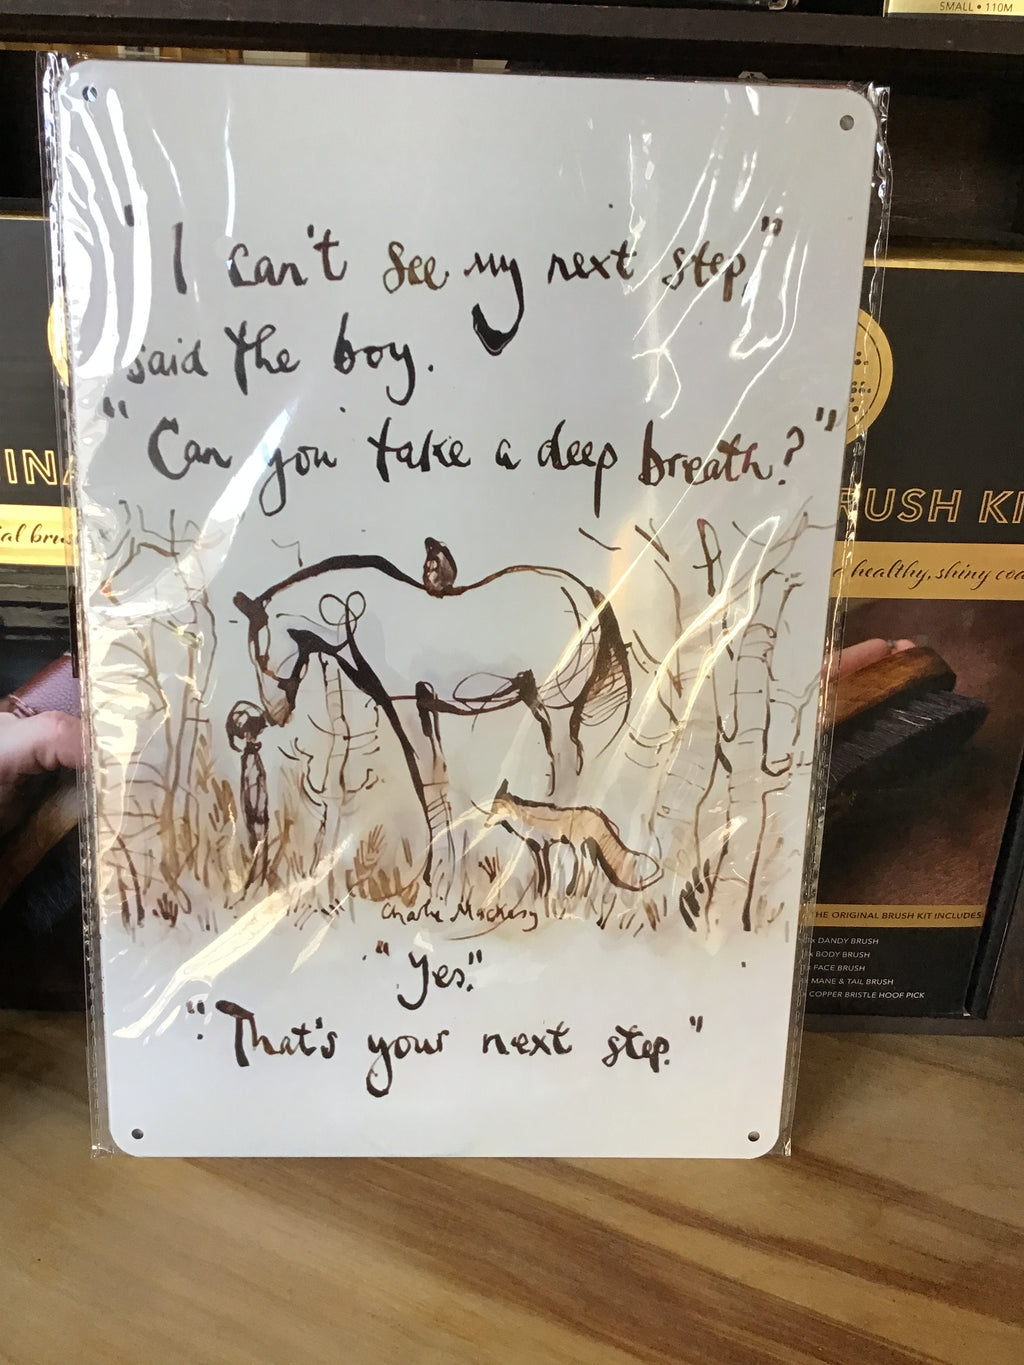 SMALL • 110M
"I can't see my next step,"
said the boy.
"Can you take a deep breath?"
Charlie Mackesy
"Yes."
"That's your next step."
ial brus
RUSH KI
a healthy, shiny coa
THE ORIGINAL BRUSH KIT INCLUDES:
DANDY BRUSH
BODY BRUSH
FACE BRUSH
MANE & TAIL BRUSH
COPPER BRISTLE HOOF PICK